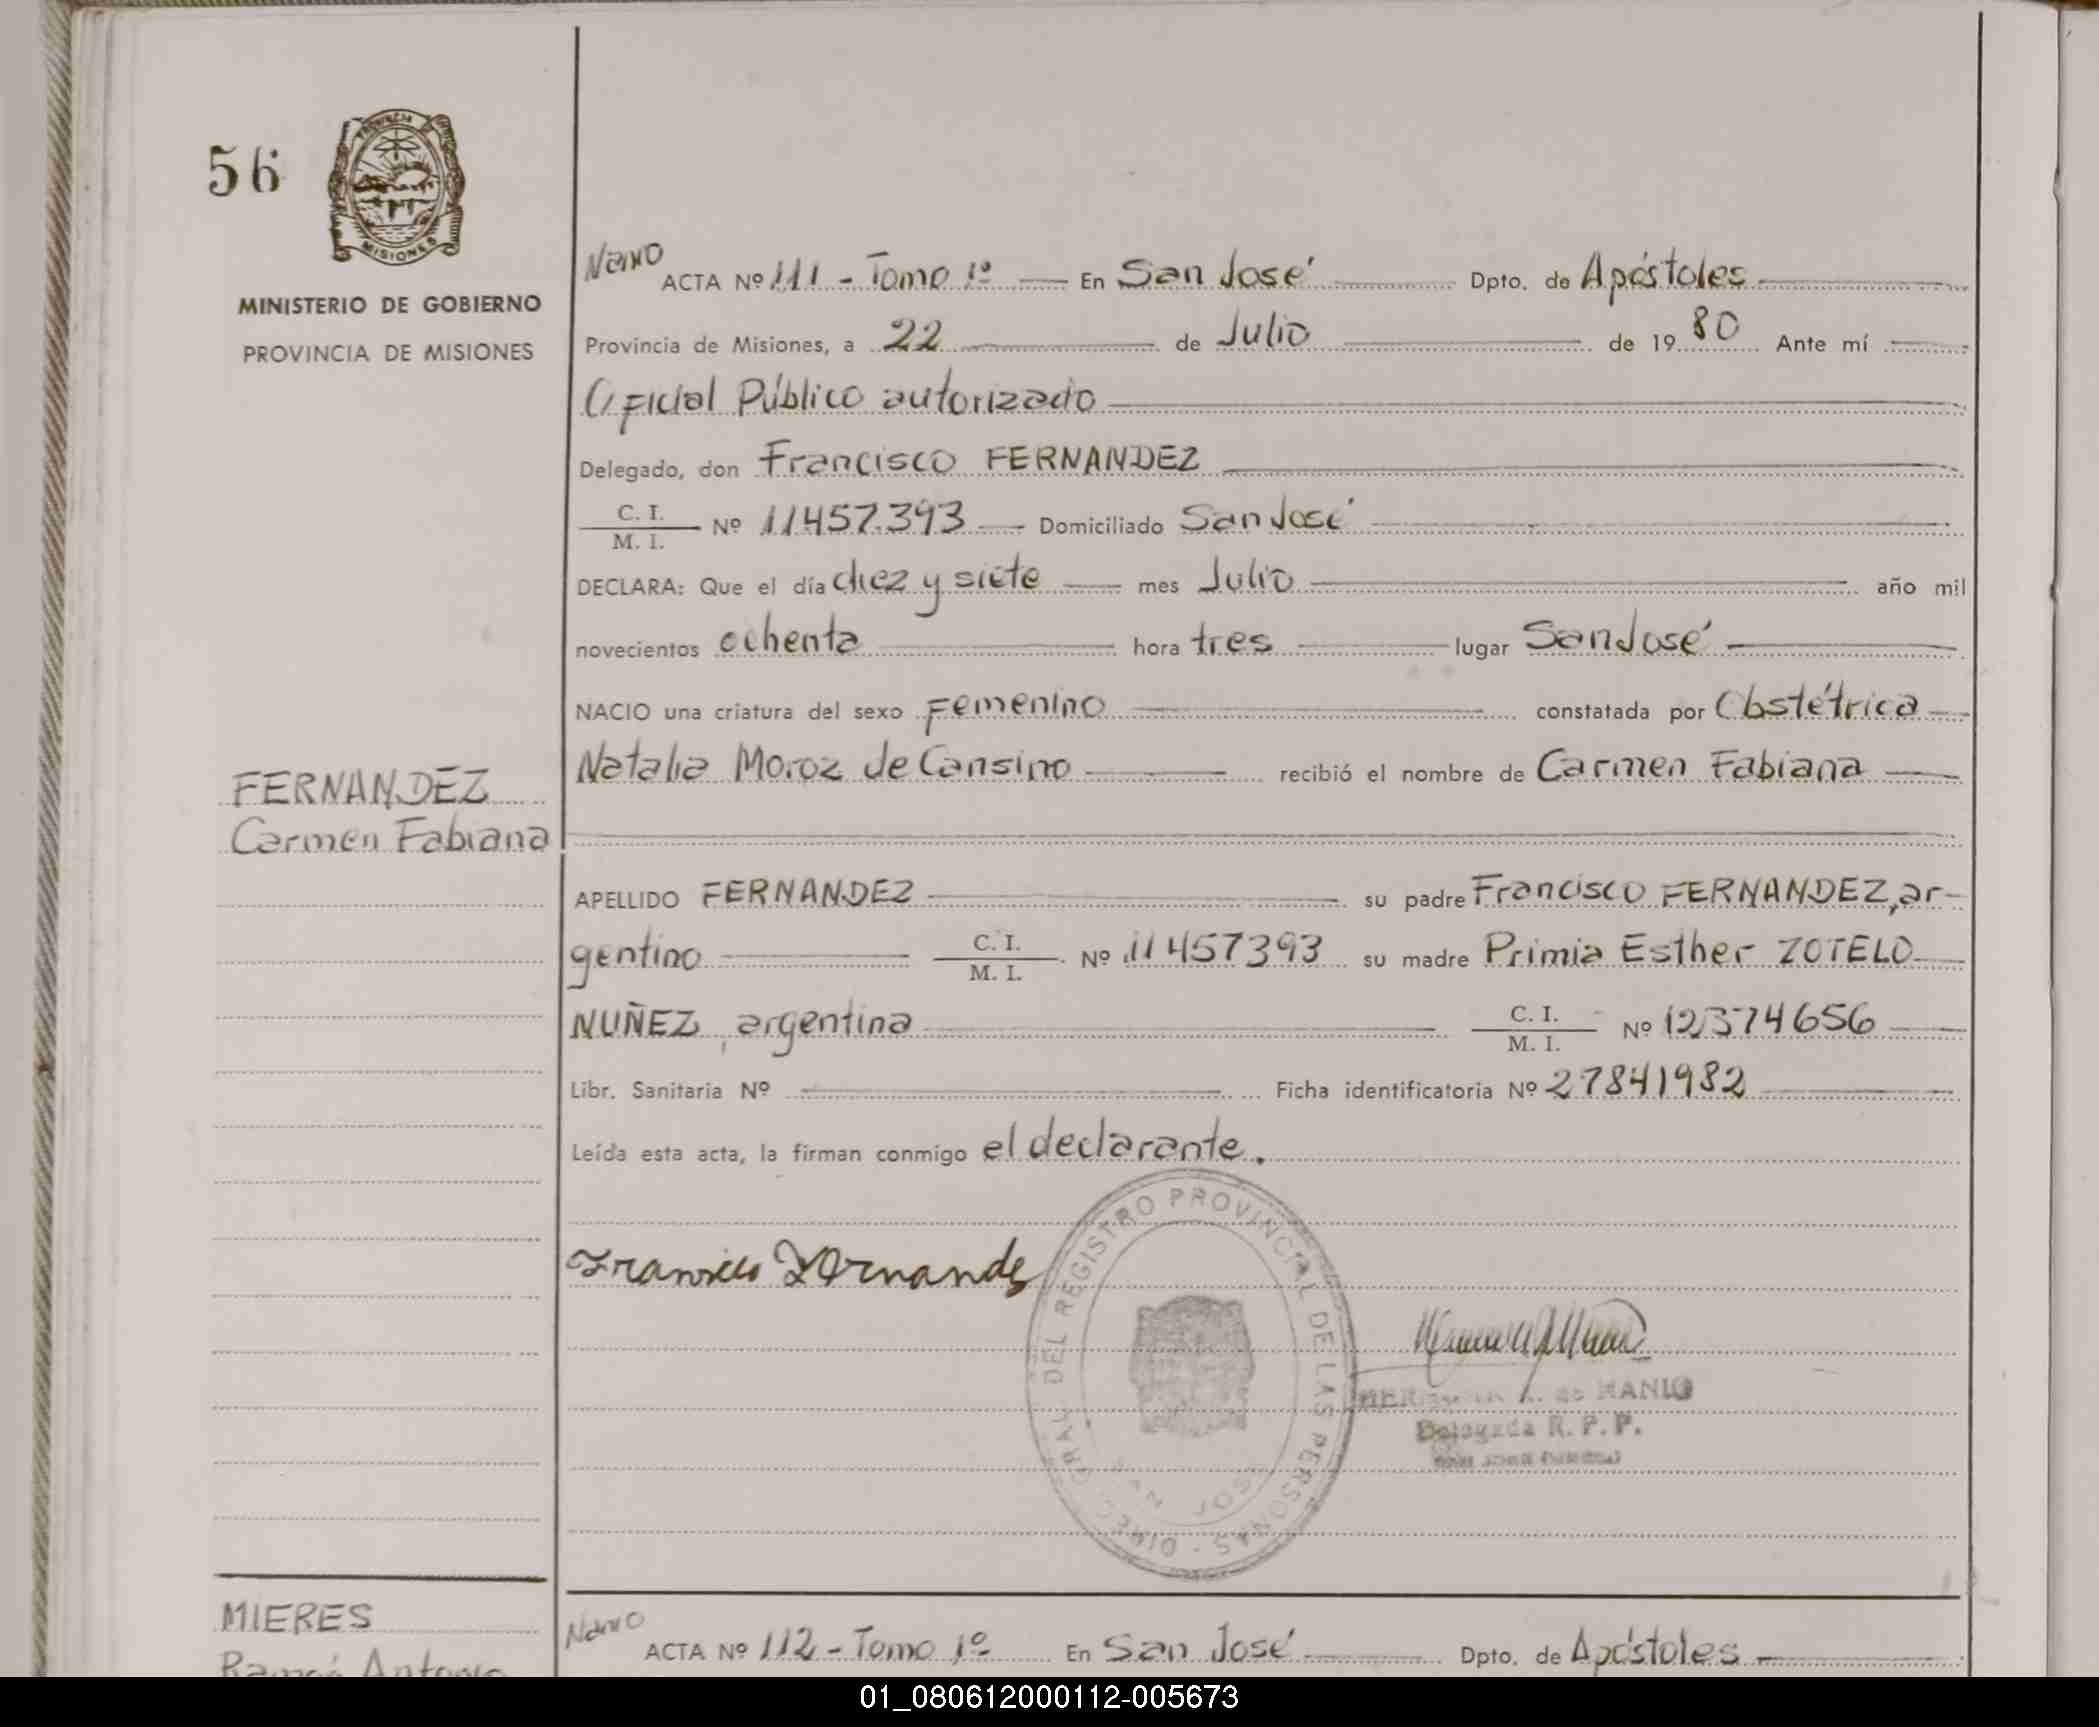 56
PROVINCIA
MISIONES
MINISTERIO DE GOBIERNO
PROVINCIA DE MISIONES
FERNANDEZ
Carmen Fabiana
ACTA Nº 111 - Tomo 1º — En San José Dpto. de Apóstoles
Provincia de Misiones, a 22 de Julio de 1980 Ante mí
Oficial Público autorizado
Delegado, don Francisco FERNANDEZ
C. I.
M. I. Nº 11457.393 — Domiciliado San José
DECLARA: Que el día diez y siete — mes Julio año mil
novecientos ochenta hora tres lugar San José
NACIO una criatura del sexo femenino constatada por Obstétrica
Natalia Moroz de Cansino recibió el nombre de Carmen Fabiana
APELLIDO FERNANDEZ su padre Francisco FERNANDEZ, ar-
gentino C. I.
M. I. Nº 11457393 su madre Primia Esther ZOTELO
NUÑEZ, argentina C. I.
M. I. Nº 12374656
Libr. Sanitaria Nº Ficha identificatoria Nº 27841982
Leída esta acta, la firman conmigo el declarante.
DIREC. GRAL. DEL REGISTRO PROVINCIAL DE LAS PERSONAS
SAN JOSE
Delegada R. P. P.
MIERES
Ramón Antonio
ACTA Nº 112 - Tomo 1º En San José Dpto. de Apóstoles
01_080612000112-005673